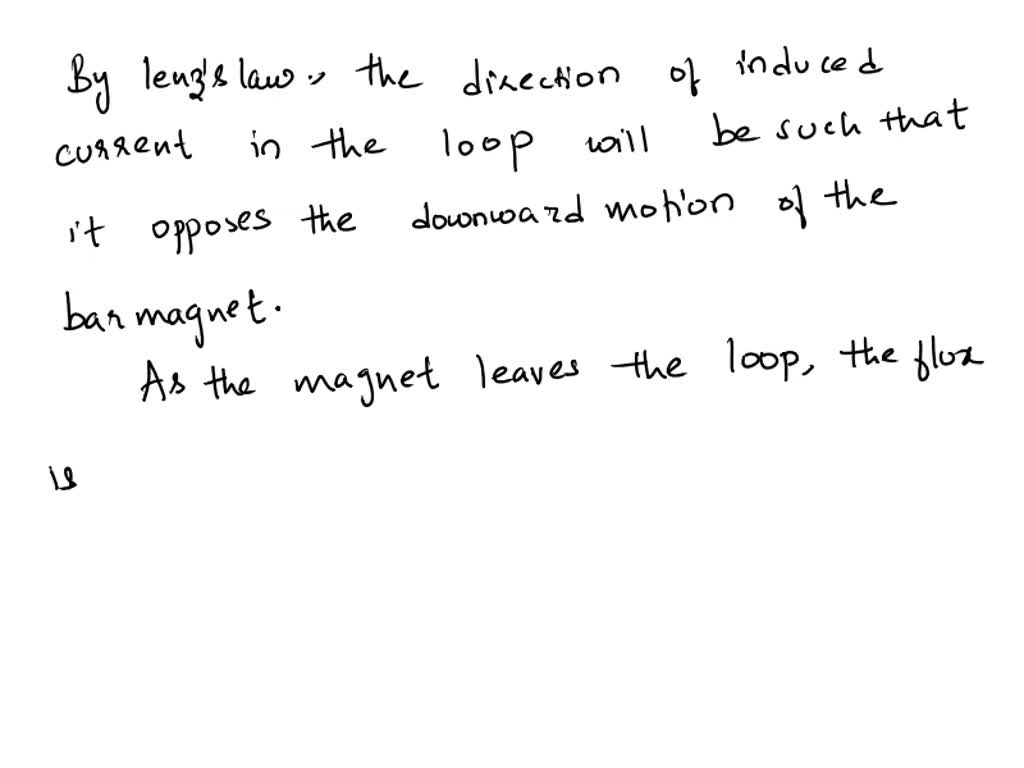 By lenz's law, the direction of induced
current in the loop will be such that
it opposes the downward motion of the
bar magnet.
As the magnet leaves the loop, the flux
is